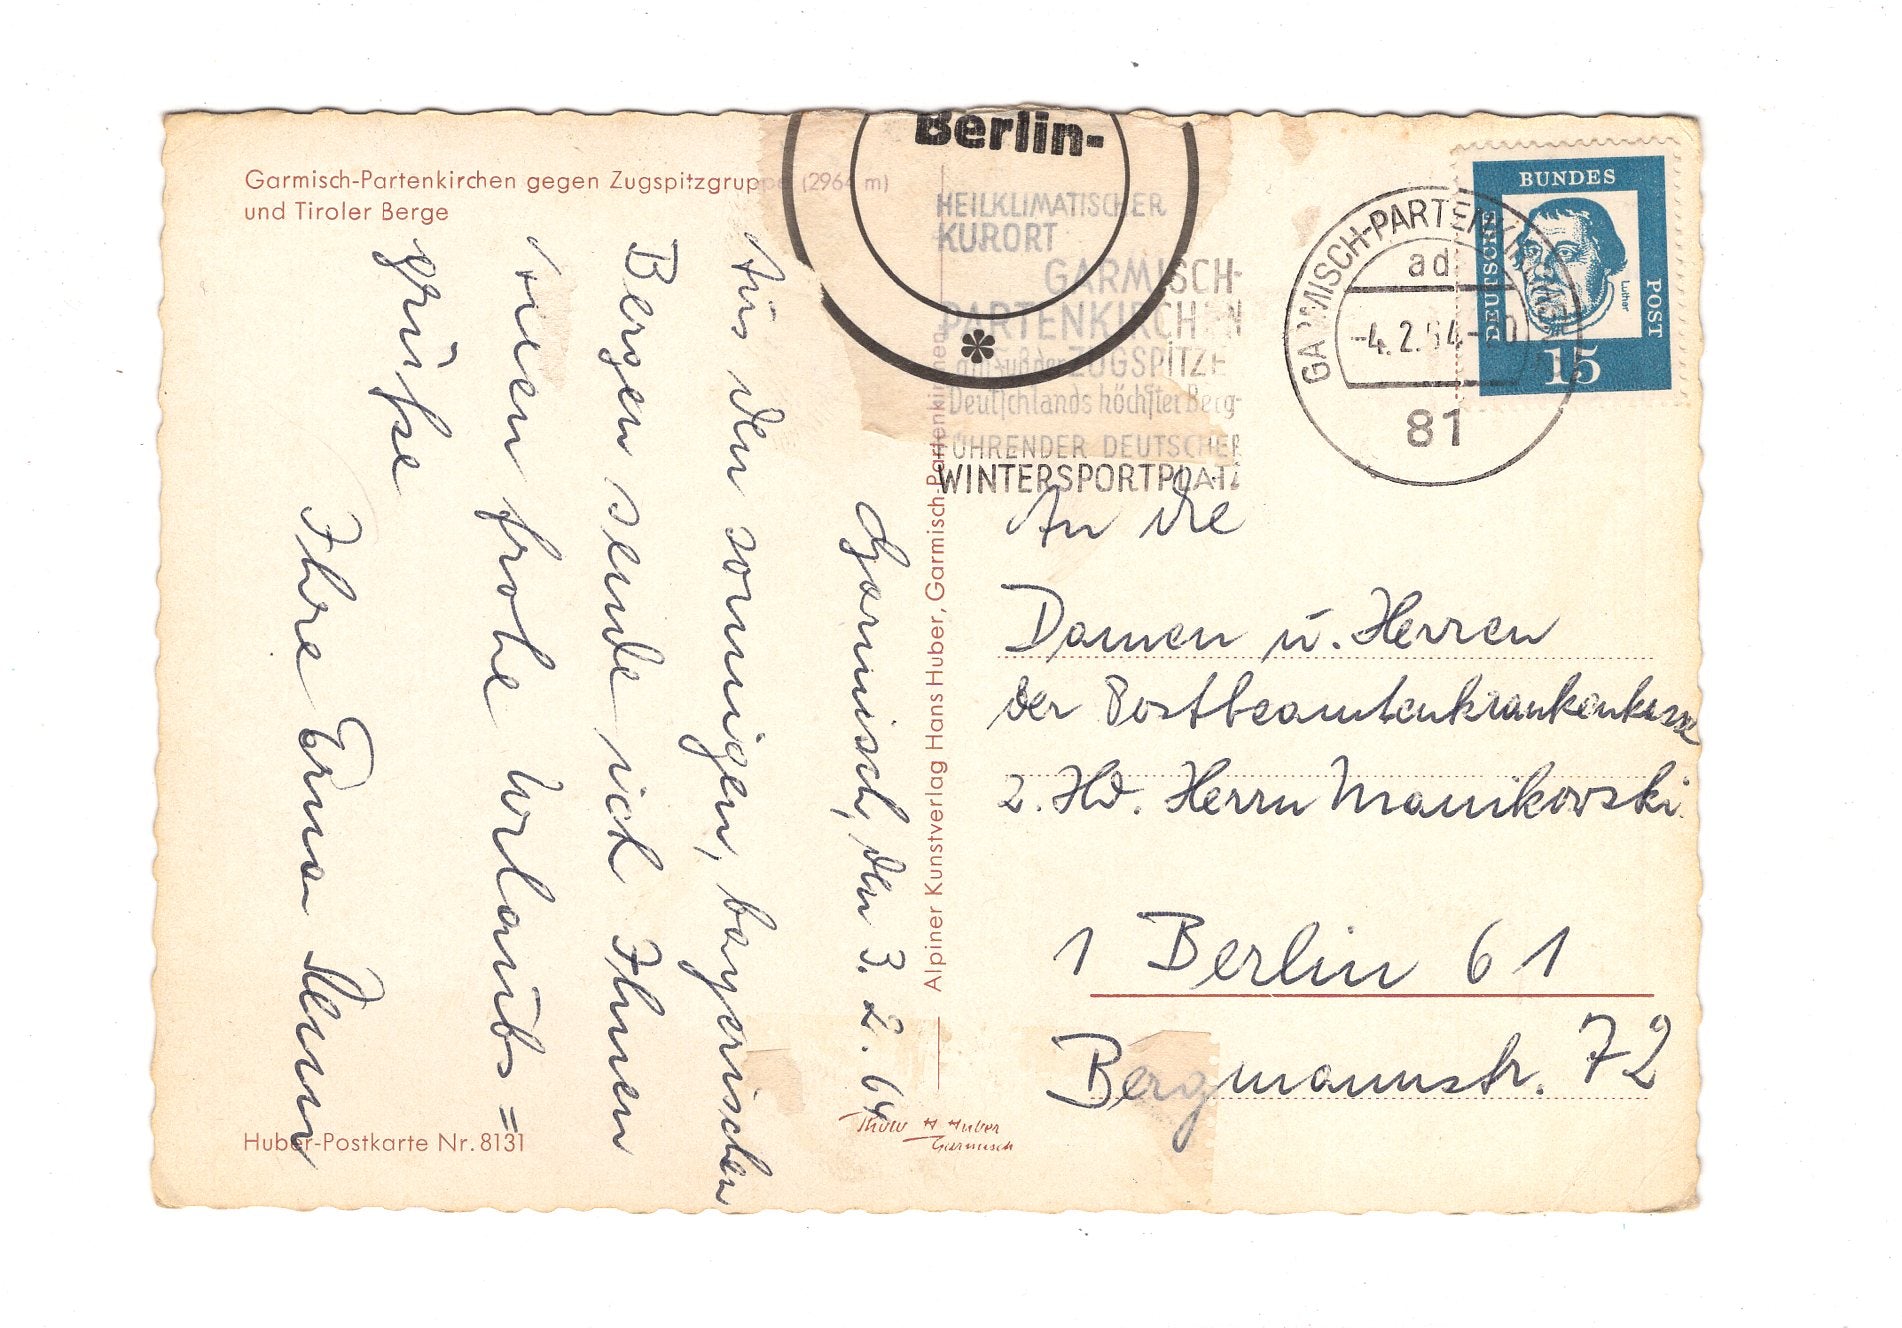 Garmisch-Partenkirchen gegen Zugspitzgruppe (2964 m)
und Tiroler Berge
Garmisch, den 3. 2. 64
Aus den sonnigen, bayerischen
Bergen sende ich Ihnen
vielen frohe Urlaubs=
grüße
Ihre Erna
Huber-Postkarte Nr. 8131
Alpiner Kunstverlag Hans Huber, Garmisch-Partenkirchen
Huber
Garmisch
Berlin-
HEILKLIMATISCHER
KURORT
GARMISCH-
PARTENKIRCHEN
am Fuß der ZUGSPITZE
Deutschlands höchster Berg-
FÜHRENDER DEUTSCHER
WINTERSPORTPLATZ
GARMISCH-PARTENKIRCHEN
ad
-4.2.64-
81
DEUTSCHE BUNDES POST
Luther
15
An die
Damen u. Herren
der Postbeamtenkrankenkasse
z. Hd. Herrn Manikowski
1 Berlin 61
Bergmannstr. 72